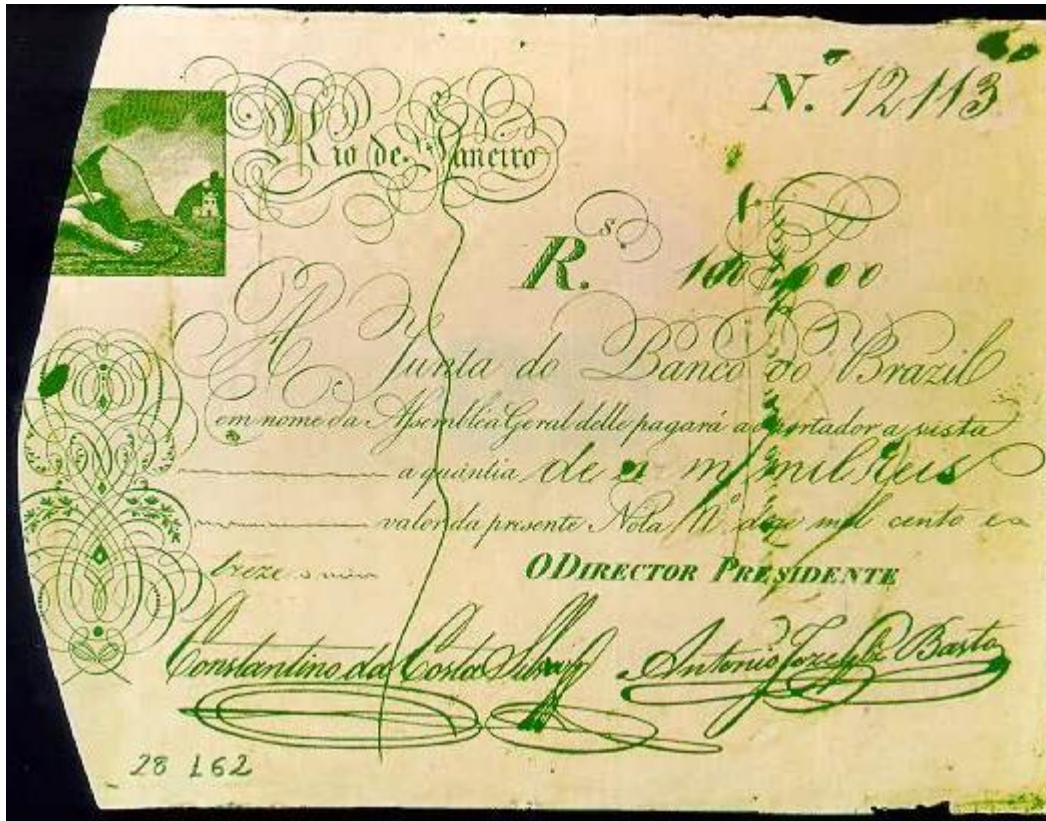 N. 12113
Rio de Janeiro
R.s 100$000
A Junta do Banco do Brazil
em nome da Assemblea Geral delle pagará ao portador a vista
a quantia de mil Reis
valor da prezente Nota N.º doze mil cento e
treze
O DIRECTOR PRESIDENTE
Constantino da Costa Antonio Joze Basto
28 162